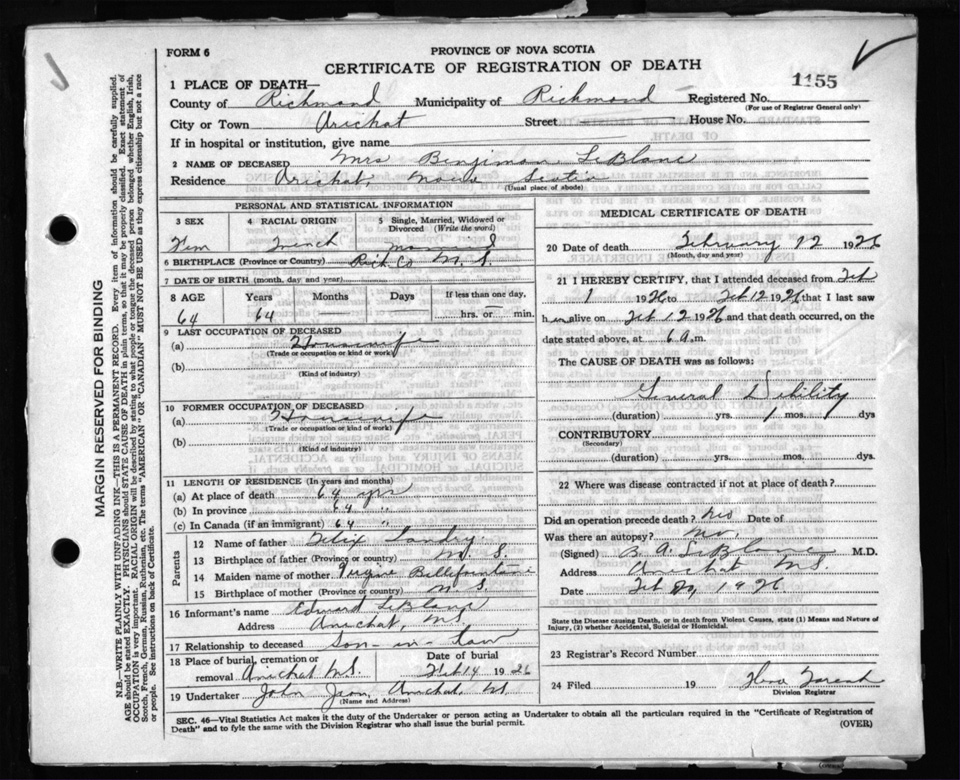 FORM 6
PROVINCE OF NOVA SCOTIA
CERTIFICATE OF REGISTRATION OF DEATH
1155
1 PLACE OF DEATH—
County of Richmond Municipality of Richmond Registered No.
(For use of Registrar General only)
City or Town Arichat Street House No.
If in hospital or institution, give name
2 NAME OF DECEASED Mrs Benjiman LeBlanc
Residence Arichat Nova Scotia
(Usual place of abode)
PERSONAL AND STATISTICAL INFORMATION
3 SEX 4 RACIAL ORIGIN 5 Single, Married, Widowed or Divorced (Write the word)
Fem French Married
6 BIRTHPLACE (Province or Country) Rich Co N.S.
7 DATE OF BIRTH (month, day and year)
8 AGE Years Months Days If less than one day,
64 64 hrs. or min.
9 LAST OCCUPATION OF DECEASED
(a) Housewife
(Trade or occupation or kind or work)
(b)
(Kind of industry)
10 FORMER OCCUPATION OF DECEASED
(a) Housewife
(Trade or occupation or kind of work)
(b)
(Kind of industry)
11 LENGTH OF RESIDENCE (In years and months)
(a) At place of death 64 yrs
(b) In province 64 "
(c) In Canada (if an immigrant) 64 "
Parents
12 Name of father Felix Landry
13 Birthplace of father (Province or country) N.S.
14 Maiden name of mother Bellefontaine
15 Birthplace of mother (Province or country) N.S.
16 Informant's name Edward LeBlanc
Address Arichat, N.S.
17 Relationship to deceased Son-in-law
18 Place of burial, cremation or removal Arichat N.S. Date of burial Feb 14 1926
19 Undertaker John Arichat N.S.
(Name and Address)
MEDICAL CERTIFICATE OF DEATH
20 Date of death February 12 1926
(Month, day and year)
21 I HEREBY CERTIFY, that I attended deceased from Feb
1 1926 to Feb 12 1926 that I last saw
h er alive on Feb 12 1926 and that death occurred, on
date stated above, at 6 a.m.
The CAUSE OF DEATH was as follows:
General Debility
(duration) yrs. 1 mos. dys
CONTRIBUTORY
(Secondary)
(duration) yrs. mos. dys.
22 Where was disease contracted if not at place of death?
Did an operation precede death? No Date of
Was there an autopsy? No.
(Signed) B. A. LeBlanc M.D.
Address Arichat N.S.
Date Feb 1926
State the Disease causing Death, or in death from Violent Causes, state (1) Means and Nature of
Injury, (2) whether Accidental, Suicidal or Homicidal.
23 Registrar's Record Number
24 Filed 19
Division Registrar
SEC. 46—Vital Statistics Act makes it the duty of the Undertaker or person acting as Undertaker to obtain all the particulars required in the "Certificate of Registration of
Death" and to fyle the same with the Division Registrar who shall issue the burial permit. (OVER)
MARGIN RESERVED FOR BINDING
N.B.—WRITE PLAINLY WITH UNFADING INK—THIS IS A PERMANENT RECORD. Every item of information should be carefully supplied.
AGE should be stated EXACTLY. PHYSICIANS should STATE CAUSE OF DEATH in plain terms, so that it may be properly classified. Exact statement of
OCCUPATION is very important. RACIAL ORIGIN will be described by stating to what people or tongue the deceased person belonged whether English, Irish,
Scotch, French, German, Russian, Ruthenian, etc. The terms "AMERICAN" OR "CANADIAN" MUST NOT BE USED as they express citizenship but not a race
or people. See instructions on back of Certificate.